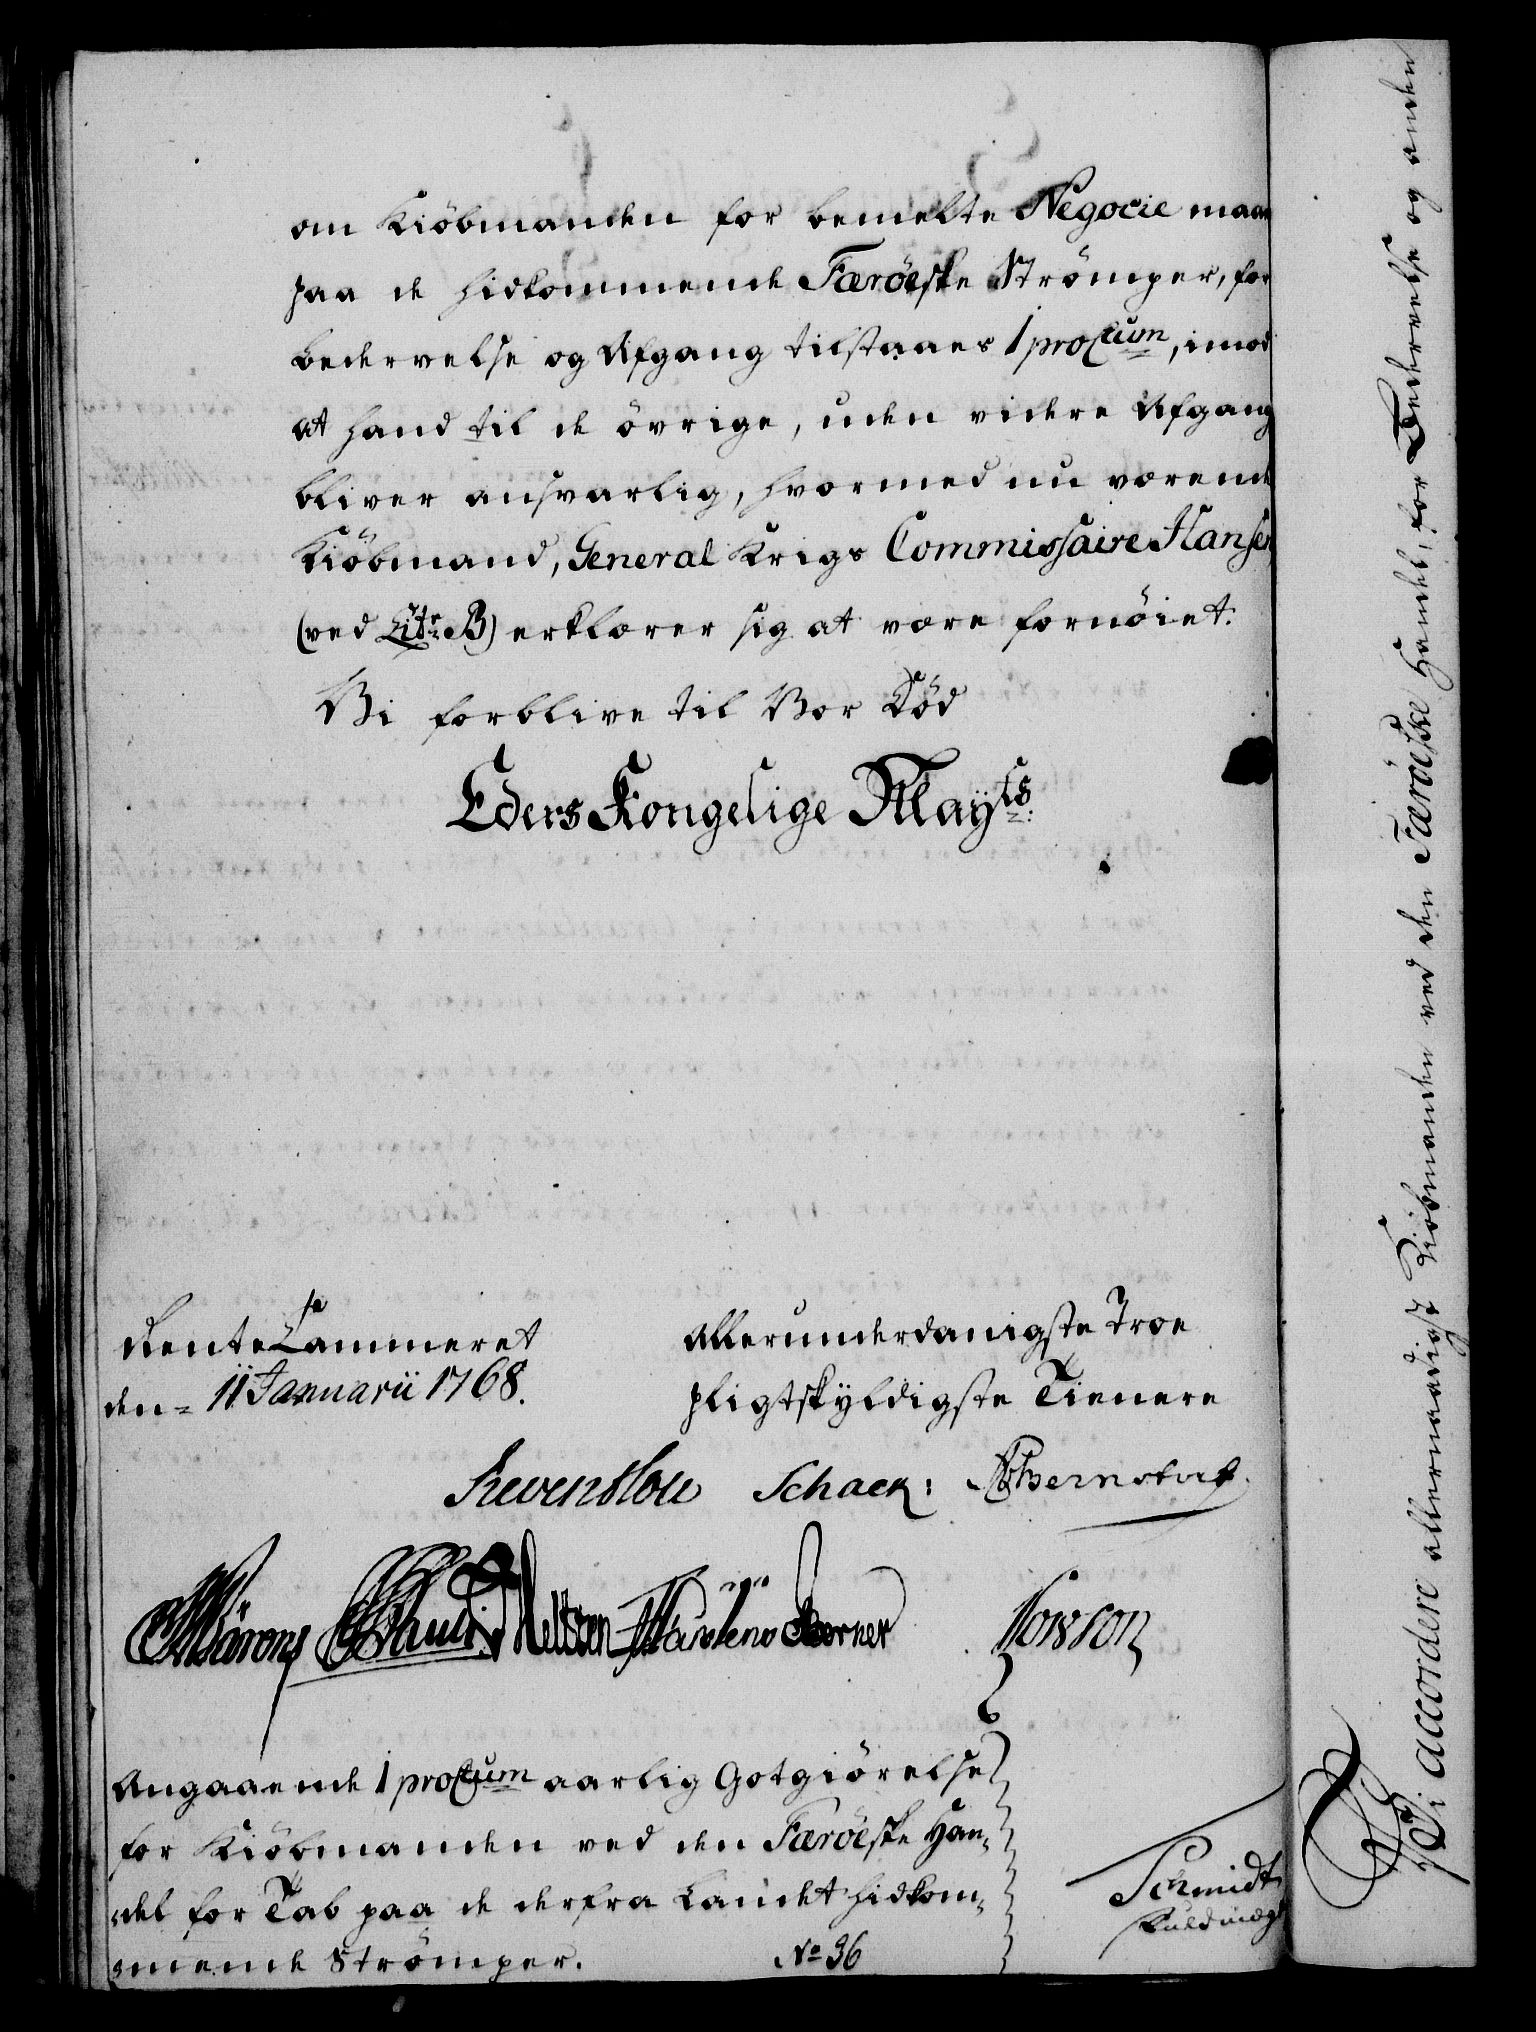 om Kiöbmanden for bemelte Negocie maae
paa de hidkommende Færöeske Strömper, for
bedervelse og Afgang tilstaaes 1 proCum, imod
at hand til de övrige, uden videre Afgang
bliver ansvarlig, hvormed nu værende
Kiöbmand, General Krigs Commissaire Hansen
(ved Litr: B) erklærer sig at være fornöiet.
Vi forblive til Vor Död
Eders Kongelige Mayts:
Rente Cammeret
den 11 Januarii 1768.
allerunderdanigste Troe
pligtskyldigste Tienere
Reventlow Schack: Bernstorf
Kärstens Horrson
Angaaende 1 proCum aarlig Gotgiörelse
for Kiöbmanden ved den Færöeske Han-
del for Tab paa de derfra Landet hidkom-
mende Strömper. No 36
Schmidt
Fuldmægt
Vi accordere allernaadigst Kiöbmanden ved den Færöeske Handel, for Bedervelse og anden